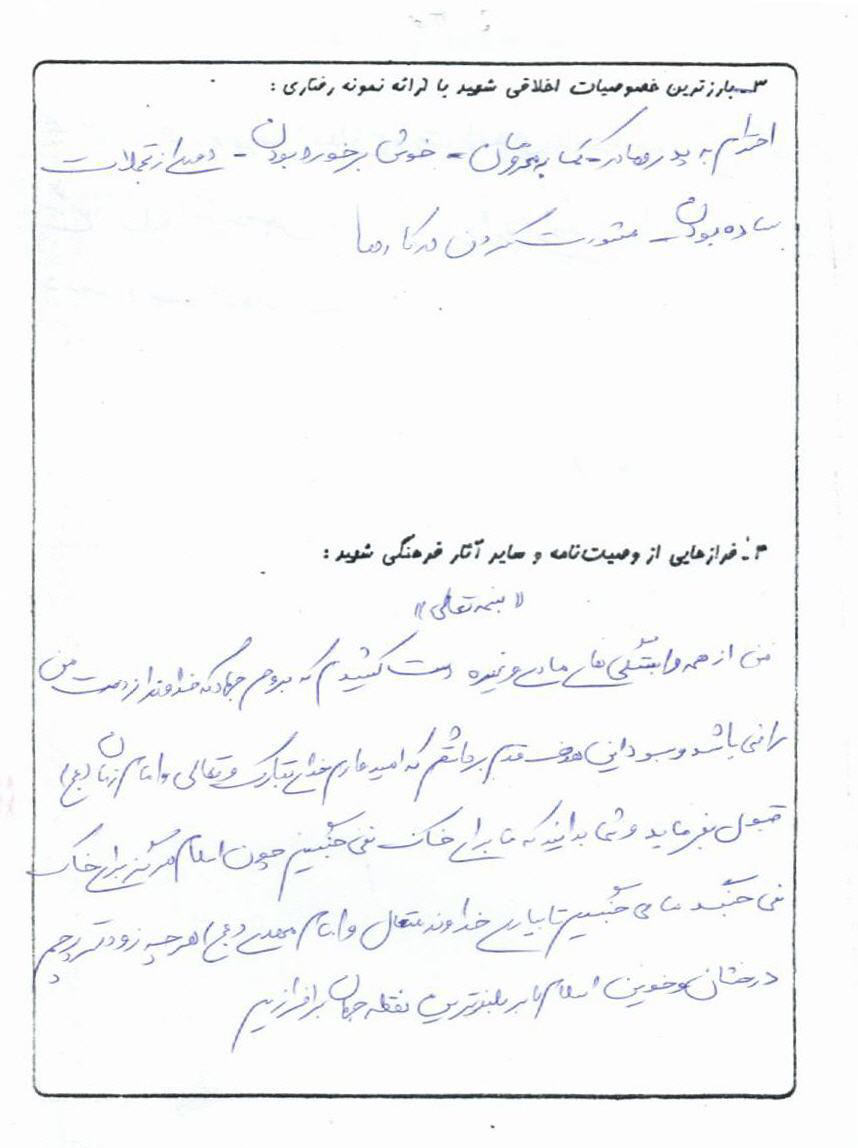 ۳ـ بارزترین خصوصیات اخلاقی شهید با ارائه نمونه رفتاری :
احترام به پدر و مادر - کمک به محرومان - خوش برخورد بودن - دوری از تجملات
ساده بودن - مشورت کردن در کارها
۴ـ فرازهایی از وصیت‌نامه و سایر آثار فرهنگی شهید :
«بسمه تعالی»
من از همه وابستگی های مادی و غیره دست کشیدم که بروم جهاد که خداوند از دست من
راضی باشد و بسوی این هدف قدم برداشتم که امیدوارم خدای تبارک و تعالی و امام زمان (عج)
قبول بفرماید و شما بدانید که ما برای خاک نمی جنگیم چون اسلام هرگز برای خاک
نمی جنگد ما می جنگیم تا بیاری خداوند متعال و امام مهدی (عج) هر چه زودتر پرچم
درخشان و خونین اسلام را بر بلندترین نقطه جهان برافرازیم